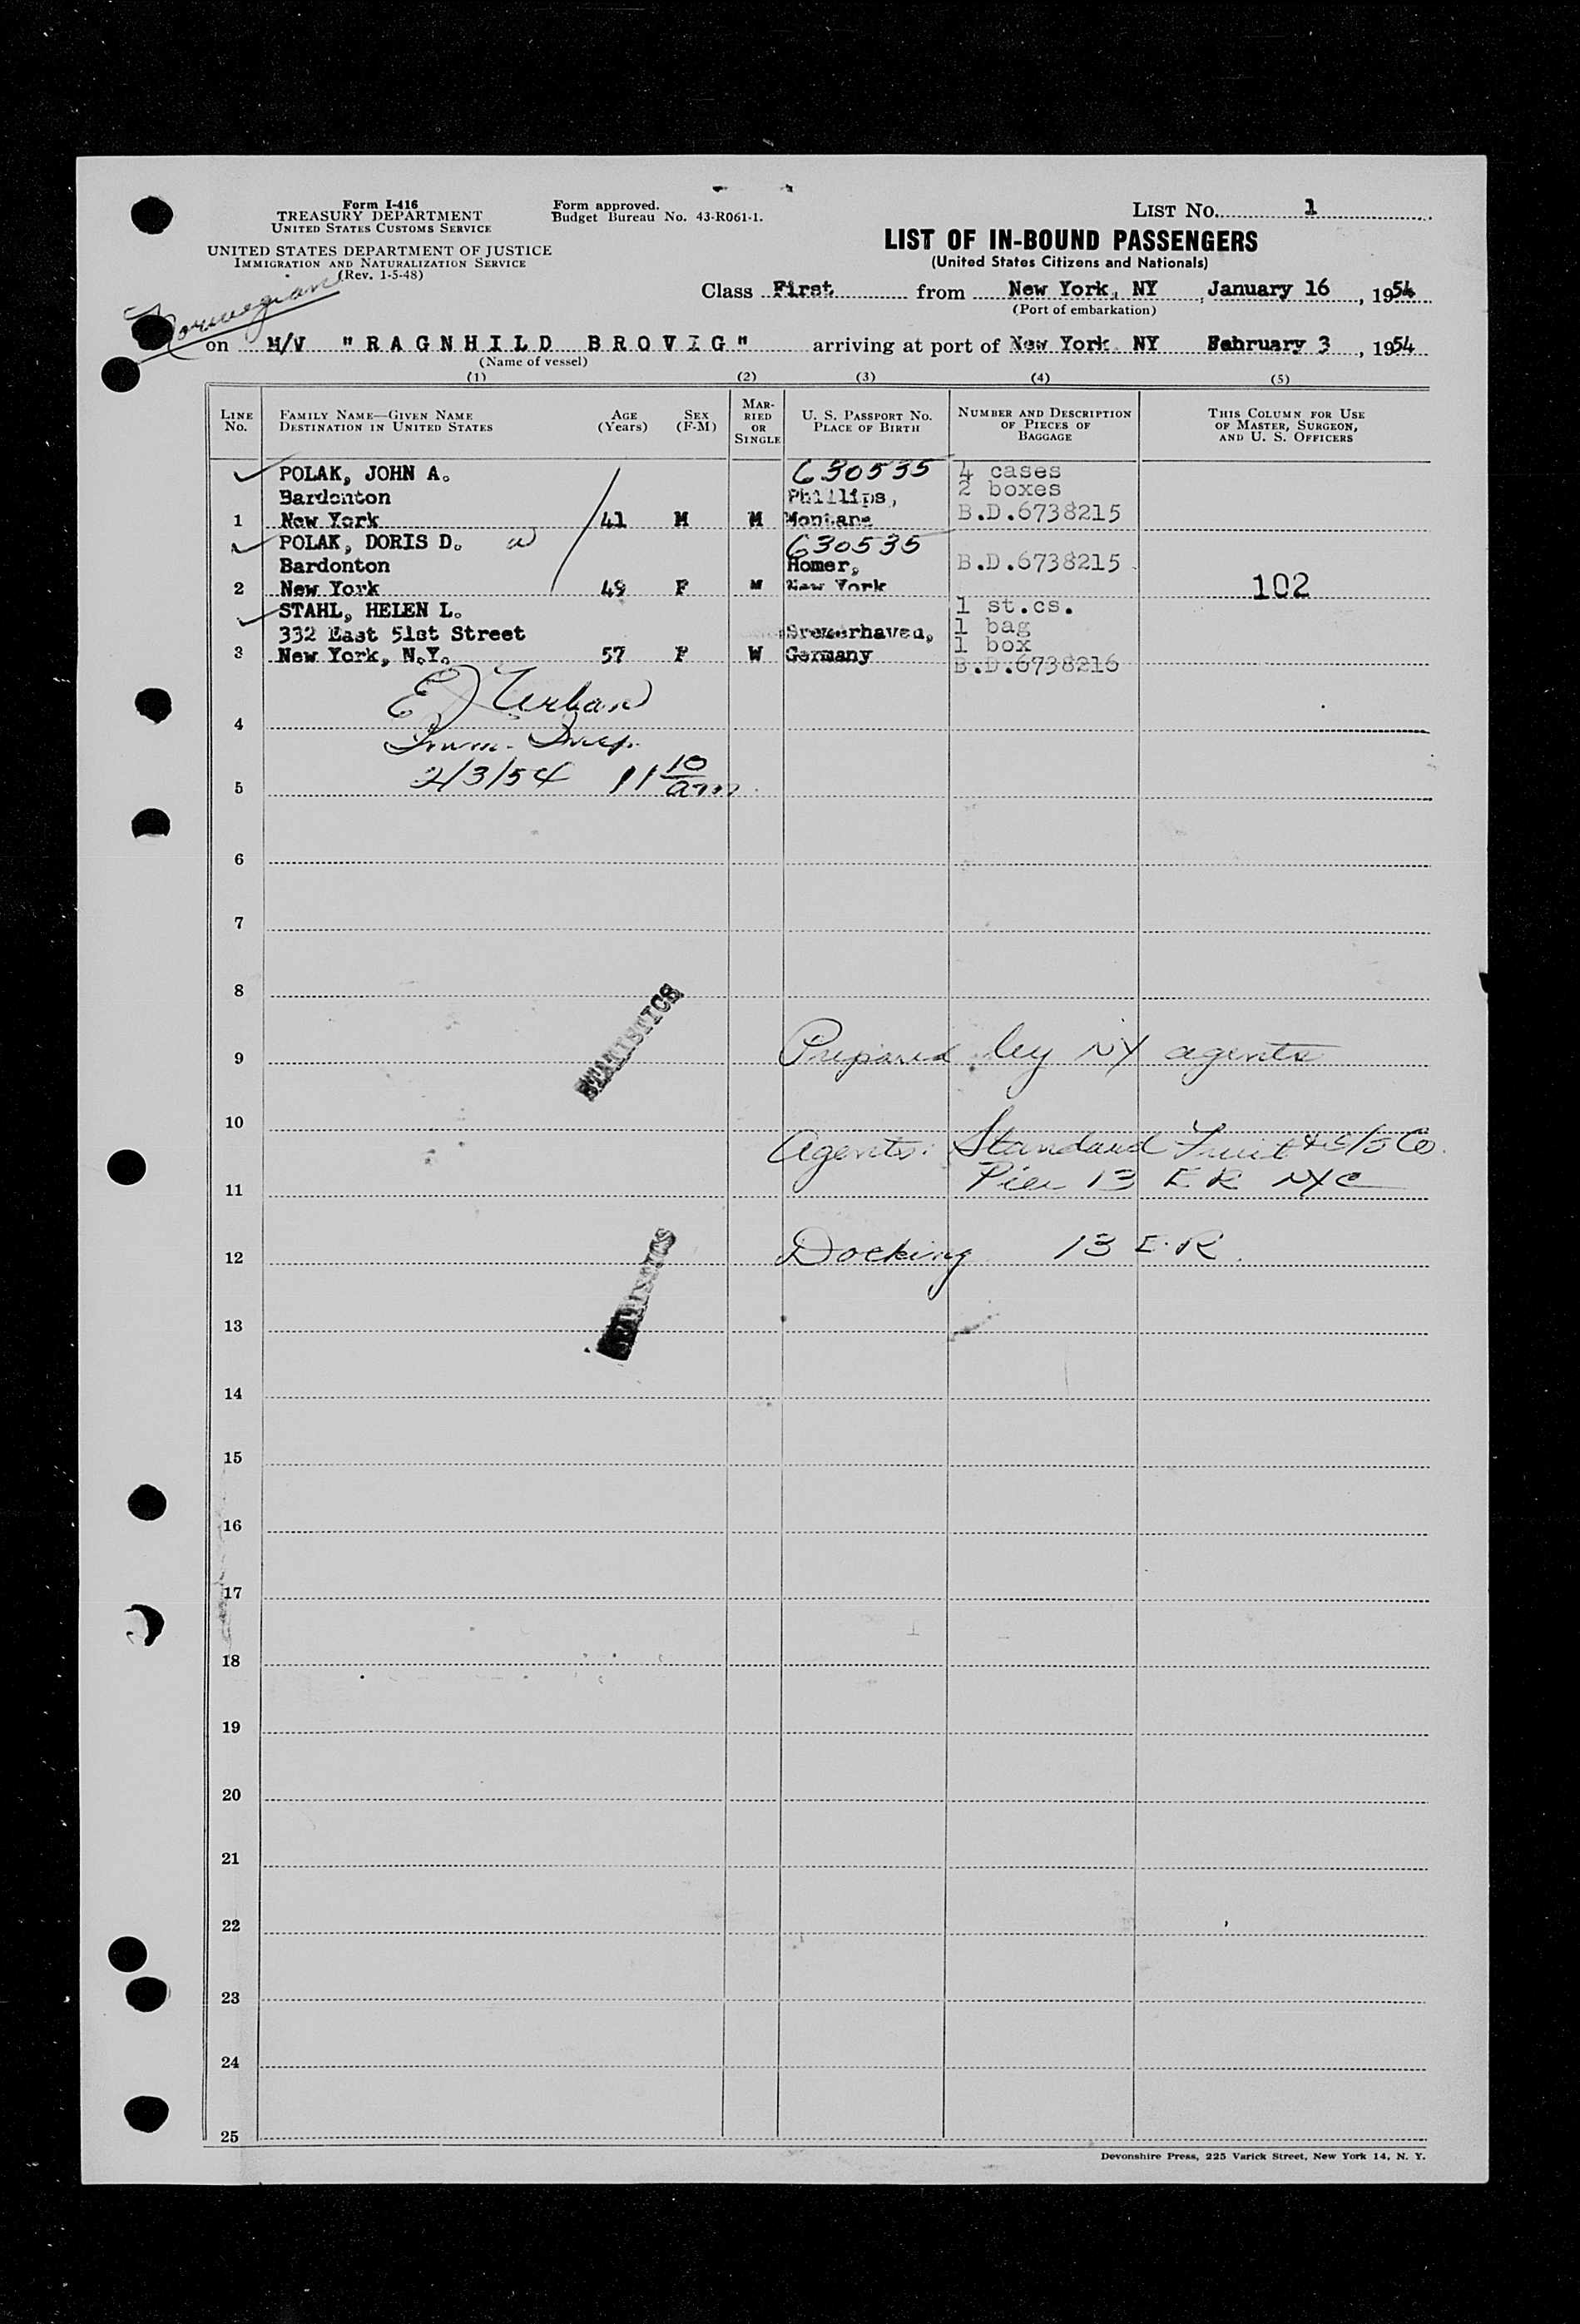 Form I-416
TREASURY DEPARTMENT
UNITED STATES CUSTOMS SERVICE
UNITED STATES DEPARTMENT OF JUSTICE
IMMIGRATION AND NATURALIZATION SERVICE
(Rev. 1-5-48)
Form approved.
Budget Bureau No. 43-R061-1.
LIST No. 1
LIST OF IN-BOUND PASSENGERS
(United States Citizens and Nationals)
Norwegian
Class First from New York, NY, January 16, 1954
(Port of embarkation)
on M/V "RAGNHILD BROVIG" arriving at port of New York NY February 3, 1954
(Name of vessel)
(1) (2) (3) (4) (5)
LINE No.
FAMILY NAME—GIVEN NAME
DESTINATION IN UNITED STATES
AGE (Years)
SEX (F-M)
MARRIED OR SINGLE
U. S. PASSPORT No.
PLACE OF BIRTH
NUMBER AND DESCRIPTION OF PIECES OF BAGGAGE
THIS COLUMN FOR USE OF MASTER, SURGEON, AND U. S. OFFICERS
POLAK, JOHN A. 630535 4 cases
Bardonton Phillips, 2 boxes
1 New York 41 M M Montana B.D.6738215
POLAK, DORIS D. 630535
Bardonton Homer, B.D.6738215
2 New York 49 F M New York 102
STAHL, HELEN L. 1 st.cs.
332 East 51st Street Bremerhaven, 1 bag
3 New York, N.Y. 57 F W Germany 1 box
B.D.6738216
E J Urban
4
Imm. Insp.
5 2/3/54 11 10 am
6
7
8
STATISTICS
9 Prepared by NY agents
10
Agents: Standard Fruit & S/S Co.
11 Pier 13 E R NYC
STATISTICS
12 Docking 13 E.R.
13
14
15
16
17
18
19
20
21
22
23
24
25
Devonshire Press, 225 Varick Street, New York 14, N. Y.